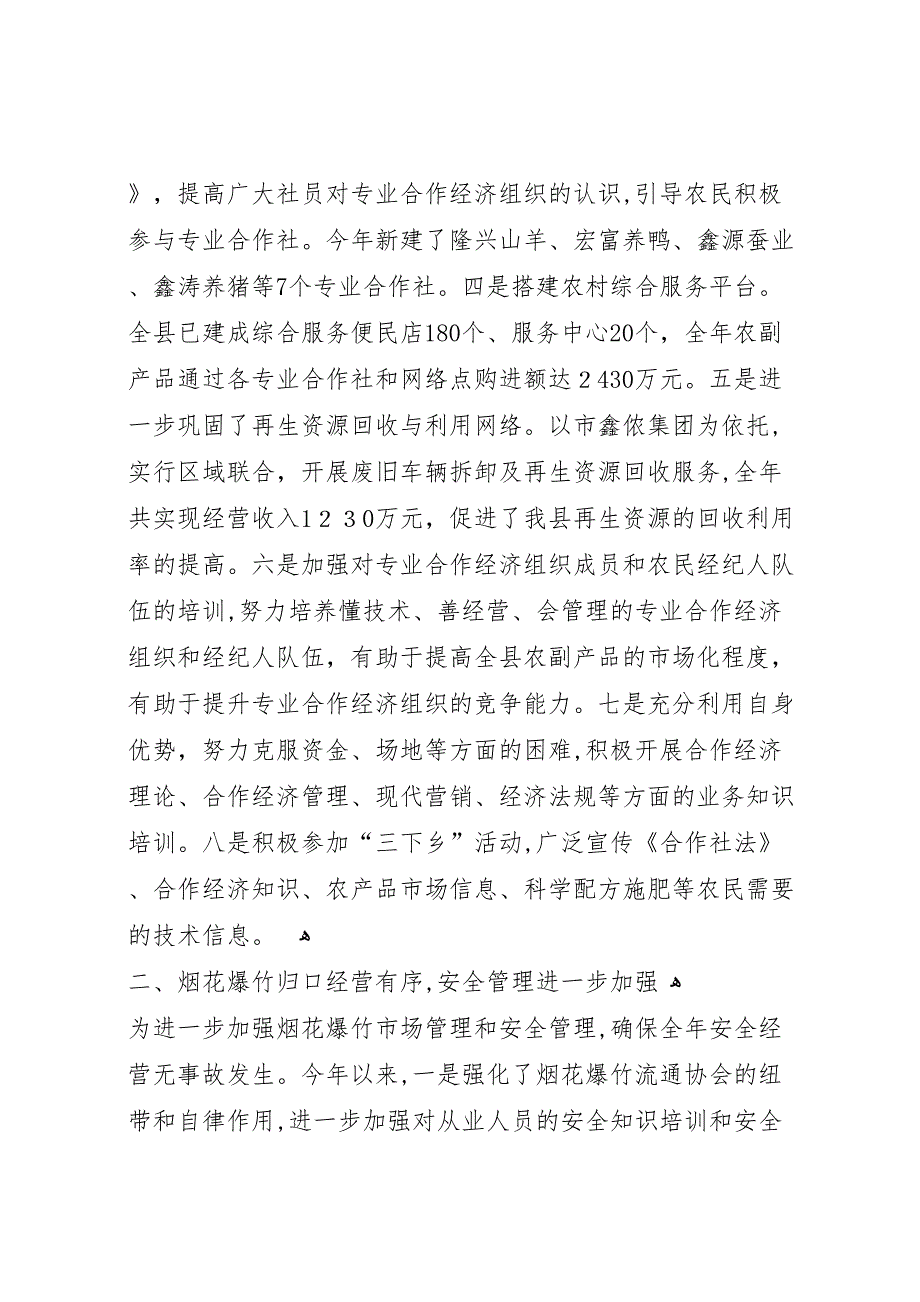 》，提高广大社员对专业合作经济组织的认识,引导农民积极
参与专业合作社。今年新建了隆兴山羊、宏富养鸭、鑫源蚕业
、鑫涛养猪等7个专业合作社。四是搭建农村综合服务平台。
全县已建成综合服务便民店180个、服务中心20个，全年农副
产品通过各专业合作社和网络点购进额达２430万元。五是进
一步巩固了再生资源回收与利用网络。以市鑫侬集团为依托，
实行区域联合，开展废旧车辆拆卸及再生资源回收服务,全年
共实现经营收入1２３0万元，促进了我县再生资源的回收利用
率的提高。六是加强对专业合作经济组织成员和农民经纪人队
伍的培训,努力培养懂技术、善经营、会管理的专业合作经济
组织和经纪人队伍，有助于提高全县农副产品的市场化程度，
有助于提升专业合作经济组织的竞争能力。七是充分利用自身
优势，努力克服资金、场地等方面的困难,积极开展合作经济
理论、合作经济管理、现代营销、经济法规等方面的业务知识
培训。八是积极参加“三下乡”活动,广泛宣传《合作社法》
、合作经济知识、农产品市场信息、科学配方施肥等农民需要
的技术信息。 ﻫ
二、烟花爆竹归口经营有序,安全管理进一步加强 ﻫ
为进一步加强烟花爆竹市场管理和安全管理,确保全年安全经
营无事故发生。今年以来,一是强化了烟花爆竹流通协会的纽
带和自律作用,进一步加强对从业人员的安全知识培训和安全